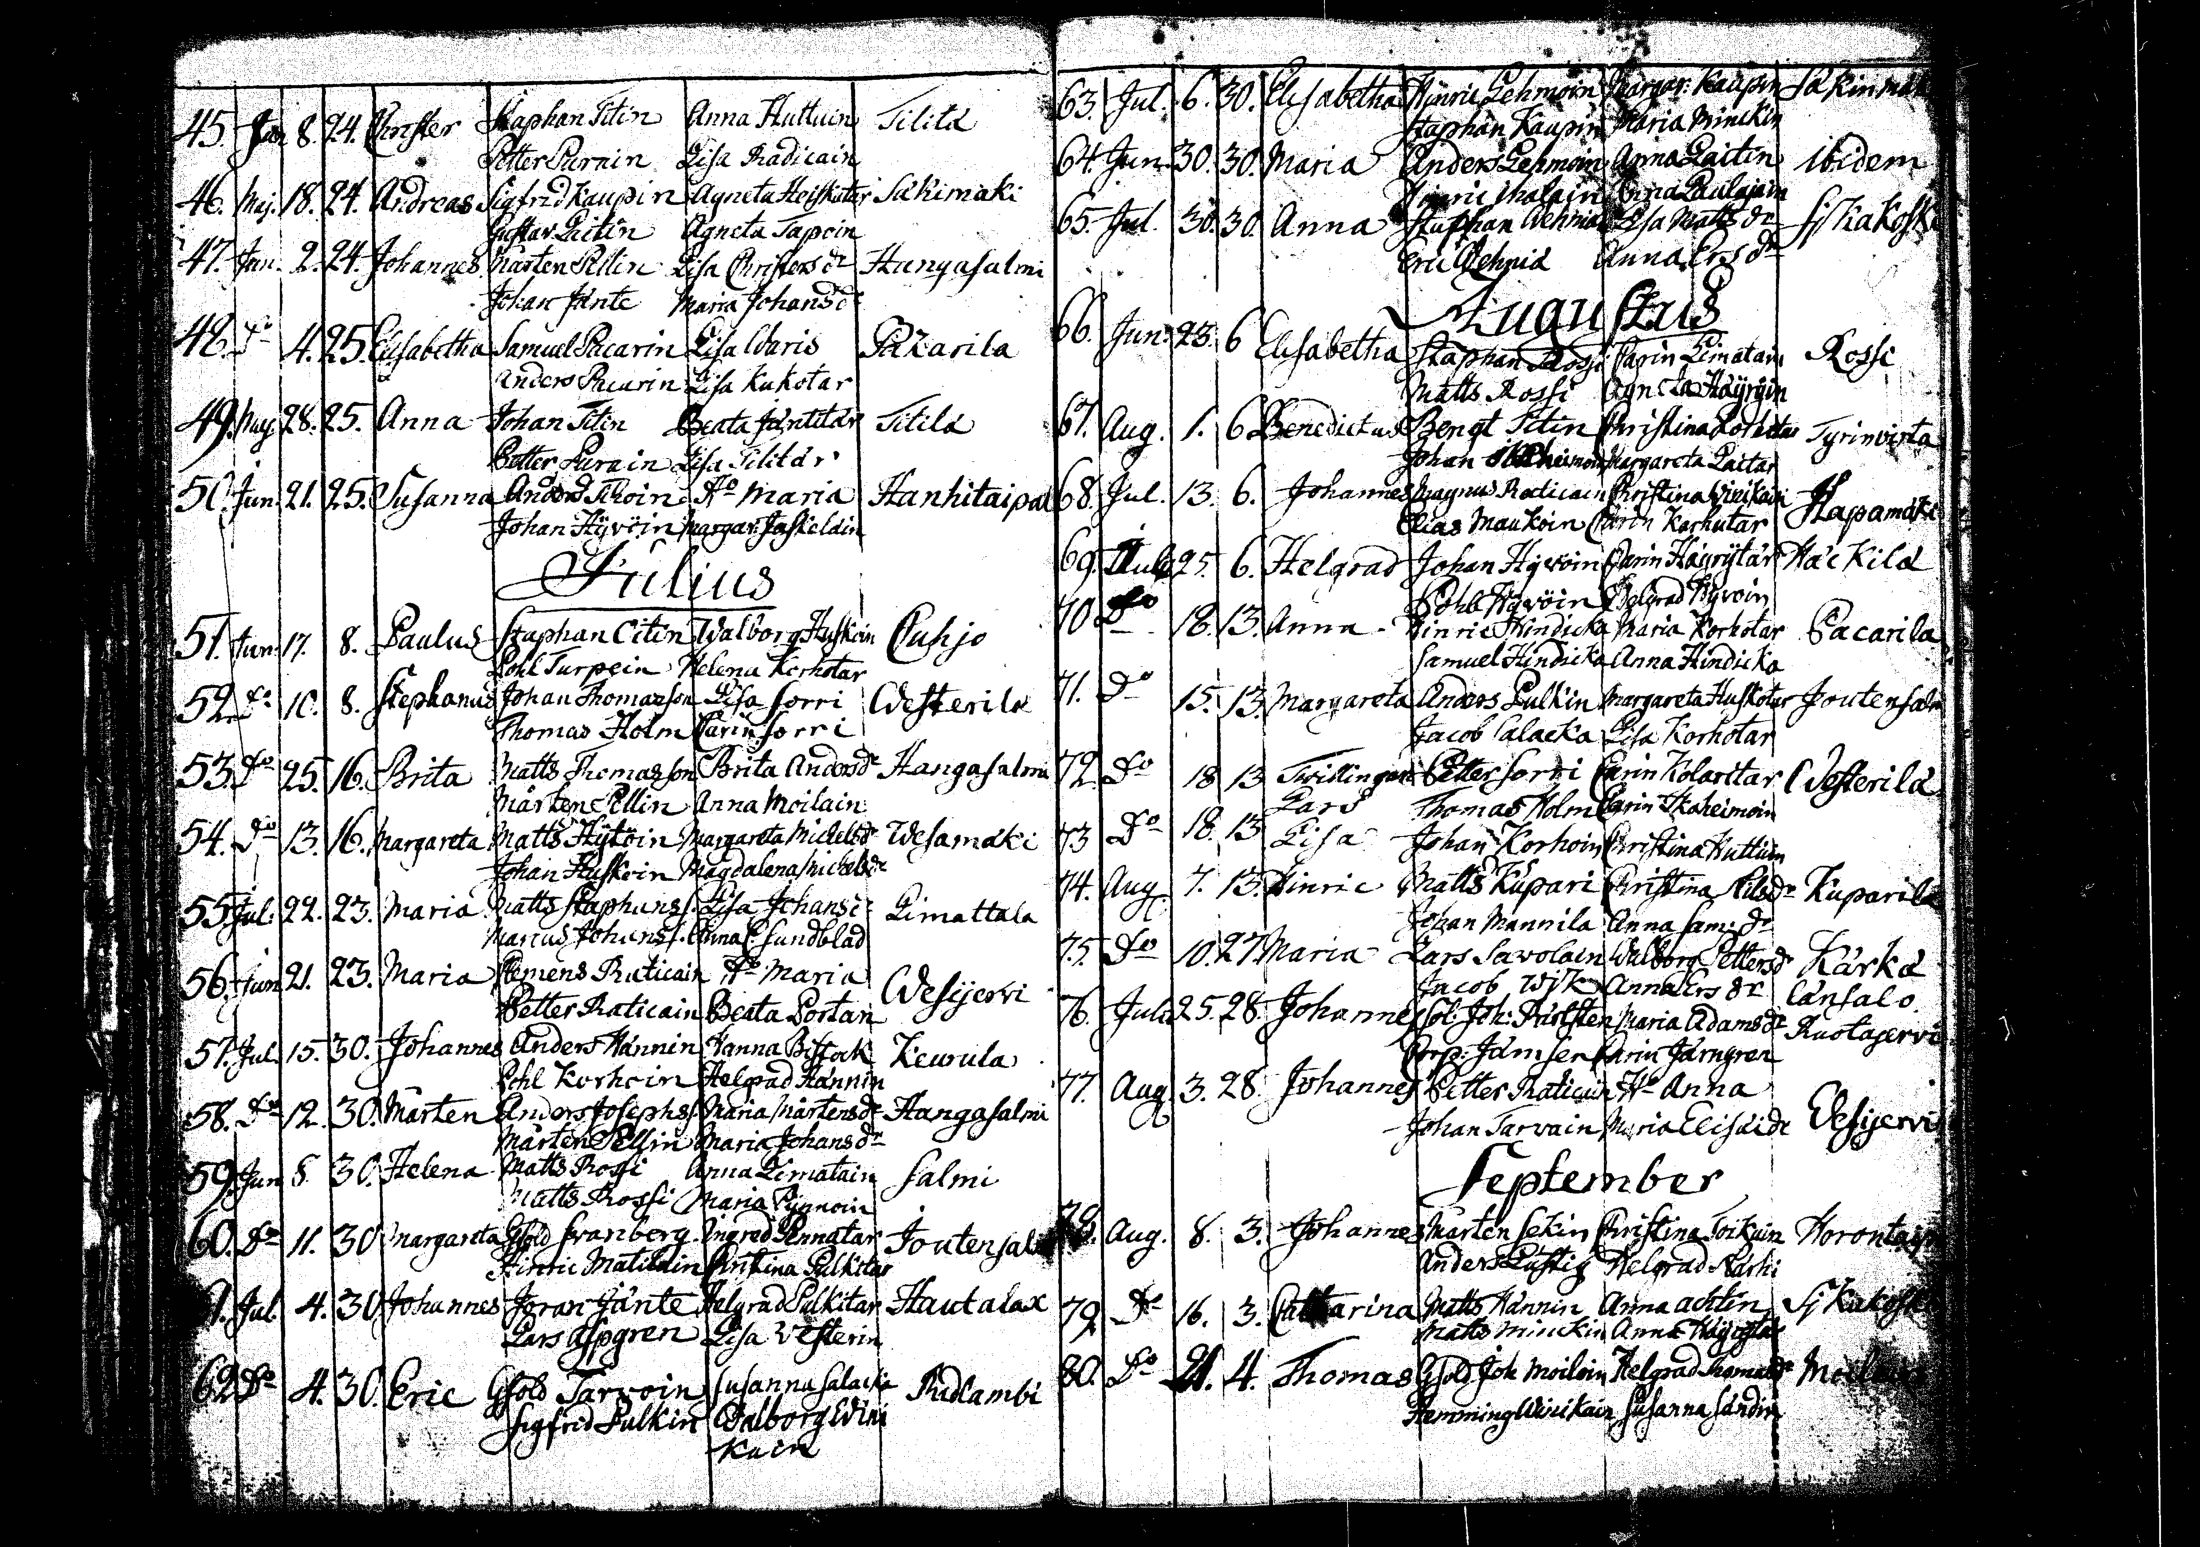 45. Jun 8. 24. Christer Staphan Titin Anna Huttuin Tilitä
Petter Purnin Lisa Radicain
46. Maj. 18. 24. Andreas Sigfrid Kaupin Agneta Heiskatar Säkimäki
Gustav Laitin Agneta Tapoin
47. Jun. 2. 24. Johannes Mårten Pellin Lisa Christersdr Hangasalmi
Johan Jänte Maria Johansdr
48. Do 4. 25. Elisabetha Samuel Pacarin Lisa Waris Pakarila
Anders Pacarin Lisa Kukotar
49. May 28. 25. Anna Johan Titin Beata Jäntitär Titilä
Petter Purain Lisa Tilitär
50. Jun. 21. 25. Susanna Anders Tihoin Ho Maria Hanhitaipal
Johan Hyvöin Margar: Jaskeläin
Julius
51. Jun. 17. 8. Paulus Staphan Titin Walborg Huskoin Cuhjo
Pohl Turpein Helena Korhotar
52. Do 10. 8. Stephanus Johan Thomasson Lisa Sorri Westerilä
Thomas Holm Carin Sorri
53. Do 25. 16. Brita Matts Thomasson Brita Andersdr Hangasalmi
Mårten Pellin Anna Moilain
54. Do 13. 16. Margareta Matts Hytöin Margareta Michelsdr Wesamäki
Johan Huskoin Magdalena Michelsdr
55. Jul. 22. 23. Maria Matts Staphanss. Lisa Johansdr Limattala
Marcus Johanss. Anna C. Sundblad
56. Jun 21. 23. Maria Clemens Raticain Ho Maria Wesijervi
Petter Raticain Beata Portan
57. Jul. 15. 30. Johannes Anders Hännin Hanna Bistock Keurula
Pohl Korhoin Helgrad Hännin
58. Do 12. 30. Mårten Anders Josephss. Maria Mårtensdr Hangasalmi
Mårten Pellin Maria Johansdr
59. Jun 8. 30. Helena Matts Rossi Anna Limatain Salmi
Matts Rossi Maria Pynnoin
60. Do 11. 30 Margareta Gsold Svanberg Ingred Pennatar Joutensal
Hinric Matilain Christina Pulkitar
Jul. 4. 30 Johannes Joran Jänte Helgrad Pulkitar Hautalax
Lars Aspgren Lisa Vesterin
62. Do 4. 30. Eric Gsold Tarvoin Susanna Salacka Pudlambi
Sigfrid Pulkin Valborg Wini
kain
63. Jul. 6. 30. Elisabetha Hinric Lehmoin Margar: Kaupin Säkinmäk
Staphan Kaupin Maria Minckin
64. Jun. 30. 30. Maria Anders Lehmoin Anna Laitin ibidem
Hinric Anna Paulajain
65. Jul. 30. 30. Anna Staphan Lisa Mattsdr
Eric Anna Ersdr
Augustus
66. Jun. 23. 6 Elisabetha Staphan Rossi Carin Limatain Rossi
Matts Rossi Agneta Häyryin
67. Aug. 1. 6 Benedictus Bengt Titin Christina Korhotar Tyrinvirta
Johan Margareta Laitar
68. Jul. 13. 6. Johannes Magnus Raticain Christina Winikain Hapamäki
Elias Maukoin Carin Korhutar
69. Jul. 25. 6. Helgrad Johan Hyvöin Carin Häyrytär Häckilä
Pohl Hyvöin Helgrad Hyvoin
70. Do 18. 13. Anna Hinric Hindicka Maria Korhotar Pacarila
Samuel Hindicka Anna Hindicka
71. Do 15. 13. Margareta Anders Pulkin Margareta Huskotar Joutensalm
Jacob Salacka Lisa Korhotar
72. Do 18 13 Twillingar Petter Sorri Carin Kolaritar Westerilä
Lars Thomas Holm Carin Ikäheimoin
73 Do 18. 13 Lisa Johan Korhoin Christina Huttuin
74. Aug. 7. 13. Hinric Matts Kupari Christina Nilsdr Kuparila
Johan Mannila Anna Sam: dr
75. Do 10. 27. Maria Lars Savolain Walborg Pettersdr Kärkä
Jacob Wik Anna Ersdr länsalo
76. Julii 25. 28. Johannes Sol: Joh: Maria Adamsdr Ruotajervi
Corp: Jämsen Carin Järngren
77. Aug. 3. 28. Johannes Petter Raticain Ho Anna Wesijervi
Johan Tarvain Maria
September
78. Aug. 8. 3. Johannes Mårten Sekin Christina Toikain
Anders Lustig Helgrad Närhi
79. Do 16. 3. Catharina Matts Hännin Anna Achtin
Matts Minckin Anna Häyrytär
80. Do 21. 4. Thomas Gsold Joh Moiloin Helgrad Thomasdr
Hemming Winikain Susanna Sändin